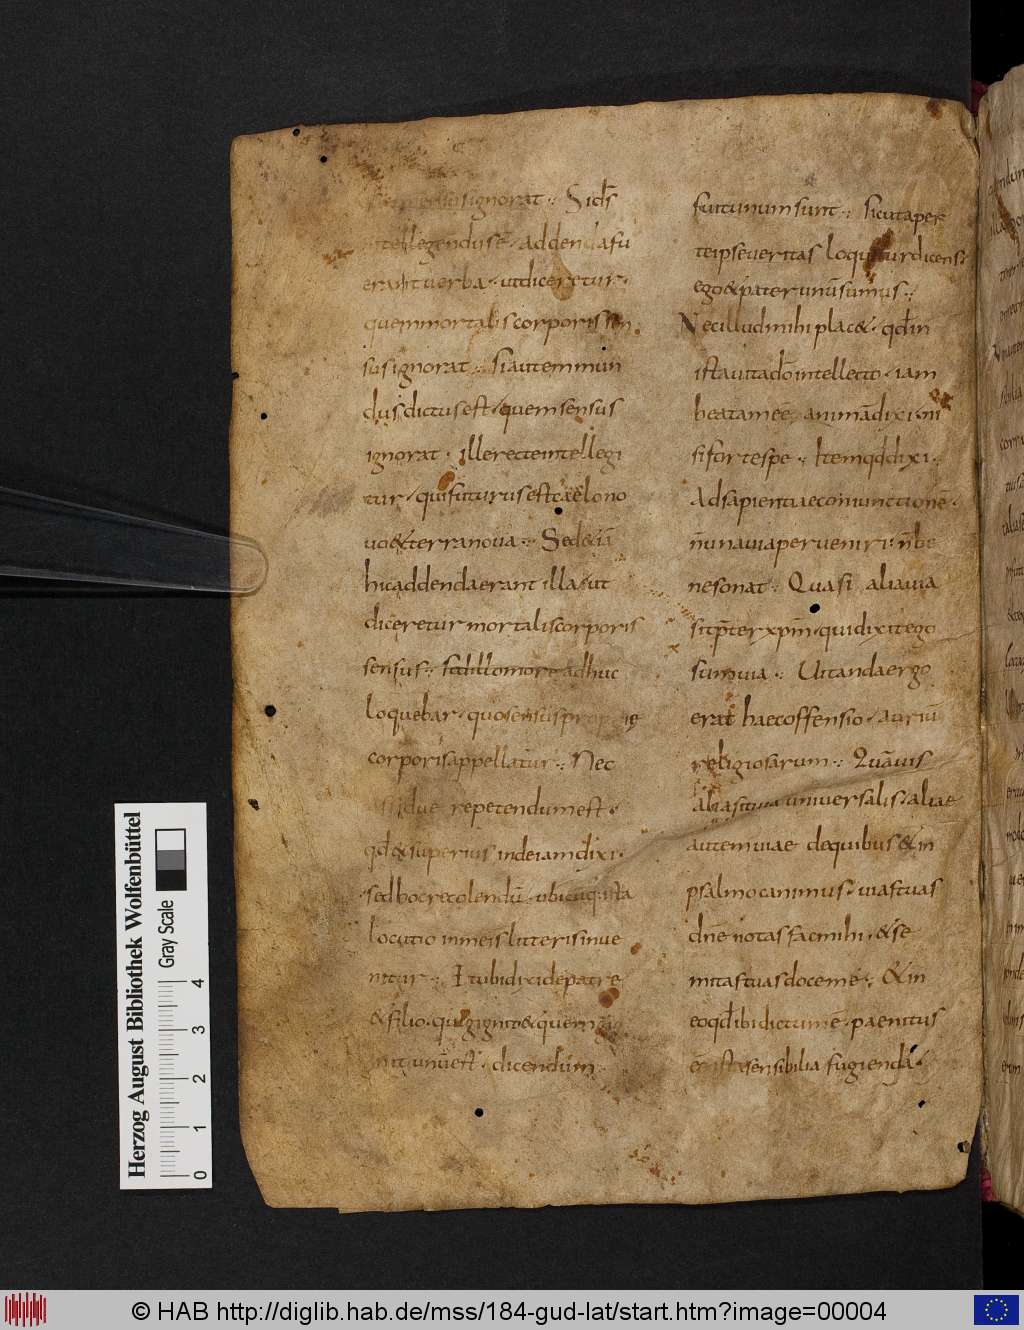 ignorat ·: Si d̄s
intellegendus ē · addenda fu
erant verba · ut diceretur ·
quem mortalis corporis sen
sus ignorat ·: Si autem mun
dus dictus est / quem sensus
ignorat · ille recte intellegi
tur / qui futurus est caelo no
vo & terra nova ·: Sed & iā
hic addenda erant illa / ut
diceretur mortalis corporis
sensus ·: sed illo more adhuc
loquebar / quo sensus
corporis appellatur ·: Nec
repetendum est ·
qđ & superius inde iam dixi ·
sed hoc recolendū · ubicūq; ista
locutio in meis litteris inve
nitur ·: Et ubi dixi de patre
& filio · qui gignit & quem gig
nit unū est · dicendum
fuit unum sunt ·: Sicut aper
te ipse veritas loquitur dicens
ego & pater unū sumus ·:
Nec illud mihi plac& · qđ in
ista vita dō intellecto · iam
beatam eē animā dixi · ni
si forte spe ·: Item qđ dixi ·
Ad sapientiae coniunctionē ·
n̄ una via perveniri · n̄ be
ne sonat ·: Quasi alia via
sit p̄ter xp̄m · qui dixit ego
sum via ·: Vitanda ergo
erat haec offensio · auriū
religiosarum ·: Quāvis
alia sit illa universalis / aliae
autem viae de quibus & in
psalmo canimus / vias tuas
dn̄e notas fac mihi · & se
mitas tuas doce me ·: & in
eo qđ ibi dictum ē / paenitus
eē ista sensibilia fugienda ·
Herzog August Bibliothek Wolfenbüttel
Gray Scale
0 1 2 3 4
© HAB http://diglib.hab.de/mss/184-gud-lat/start.htm?image=00004